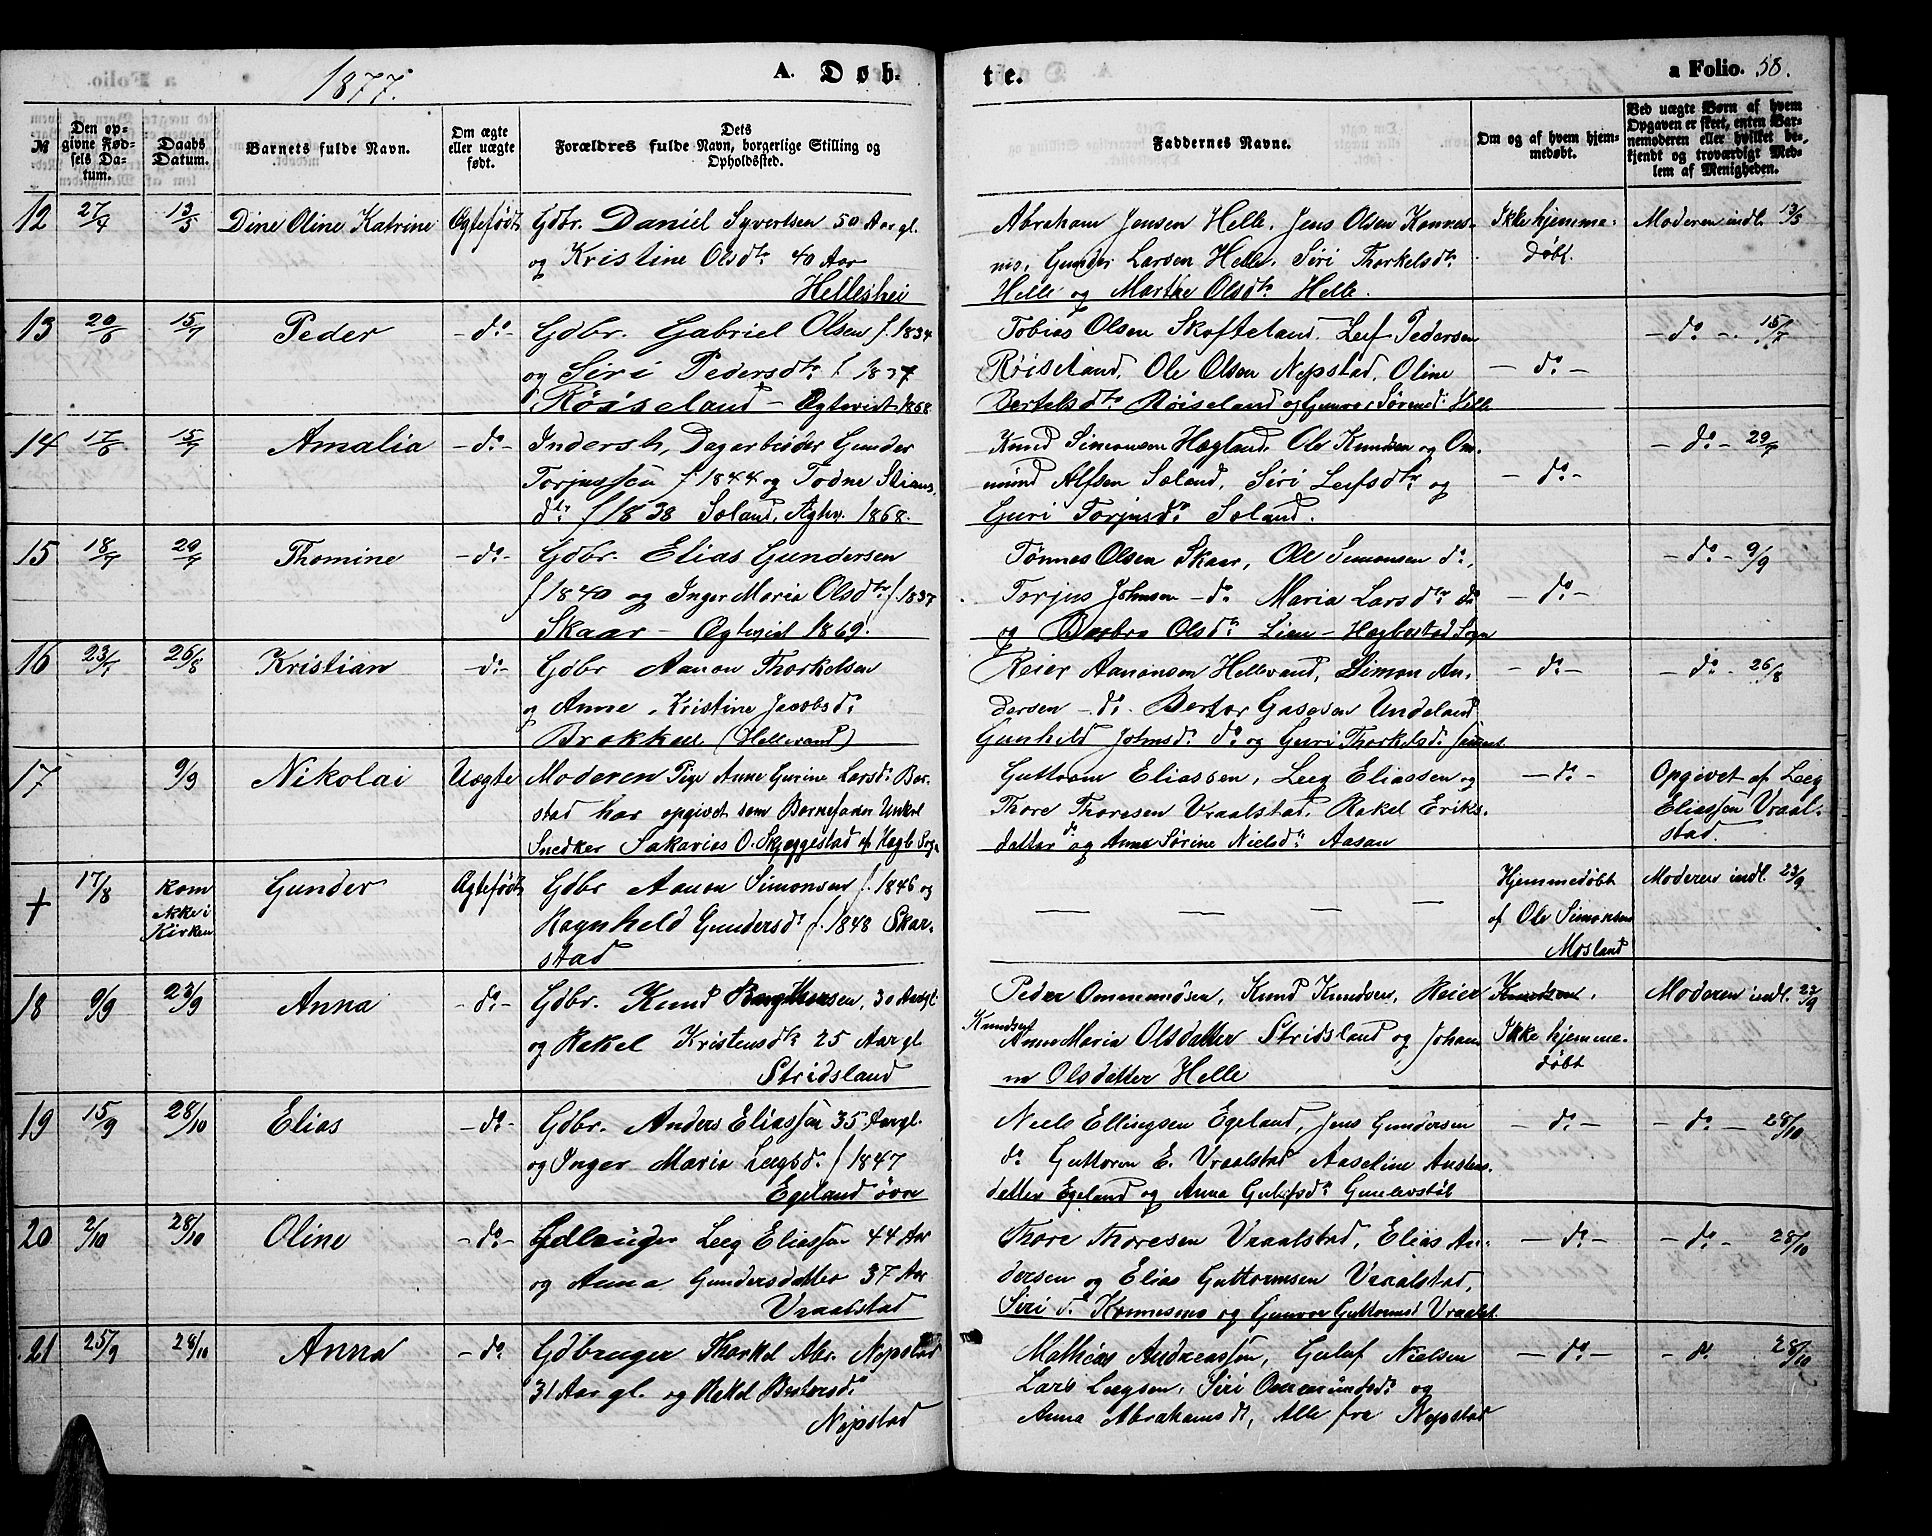 1877.
A. Døb-
te.
a Folio. 58.
№
Den op-
givne Fød-
sels Da-
tum.
Daabs
Datum.
Barnets fulde Navn.
Om ægte
eller uægte
født.
Dets
Forældres fulde Navn, borgerlige Stilling og
Opholdssted.
Faddernes Navne.
Om og af hvem hjem-
medøbt.
Ved uægte Børn af hvem
Opgaven er skeet, enten Bar-
nemoderen eller hvilket be-
kjendt og troværdigt Med-
lem af Menigheden.
12 27/4 13/5 Dine Oline Katrine Ægtefødt Gdbr. Daniel Syvertsen 50 Aar gl.
og Kristine Olsdtr 40 Aar
Helleshei
Abraham Jensen Helle, Jens Olsen Konnes-
mo, Gunder Larsen Helle, Siri Thorkelsdtr
Helle og Marthe Olsdtr Helle.
Ikke hjemme-
døbt.
Moderen indl. 13/5
13 20/6 15/7 Peder -do- Gdbr. Gabriel Olsen f. 1834
og Siri Pedersdtr f 1837
Røiseland - Ægteviet 1868
Tobias Olsen Skofteland. Leif Pedersen
Røiseland, Ole Olsen Nepstad, Oline
Bertelsdtr Røiseland og Gunvor Sørensd: Helle
- do -
- do - 15/7
14 17/6 15/7 Amalia -do- Indersh, Dagarbeider Gunder
Torjussen f 1844 og Todne Stians
dtr f 1838 Soland, Ægtev. 1868.
Knud Simonsen Høgland. Ole Knudsen og Om-
mund Alfsen Soland, Siri Leifsdtr og
Guri Torjusdtr Soland.
- do -
- do - 29/7
15 18/7 29/7 Thomine -do- Gdbr. Elias Gundersen
f 1840 og Inger Maria Olsdtr f. 1837
Skaar - Ægteviet 1869.
Tønnes Olsen Skaar, Ole Simonsen do,
Torjus Johnsen - do Maria Larsdtr do
og Barbro Olsdtr Lien - Hægbostad Sogn
- do -
- do - 9/9
16 23/7 26/8 Kristian -do- Gdbr Aanon Thorkelsen
og Anne Kristine Jacobsd:
Brekkan (Hellevand)
Reier Aanonsen Hellevand, Simon An-
dersen - do. Berthor Gasesen Undeland
Gunhild Johnsd: do og Guri Thorkelsd:
- do -
- do - 26/8
17 9/9 Nikolai Uægte Moderen Pige Anne Gurine Larsd: Bor-
stad har opgivet som Barnefader Unkel
Snedker Sakarias O. Skjeggestad af Hægb Sogn
Guttorm Eliassen, Leeg Eliassen og
Thore Thoresen Vraalstad, Rakel Eriks-
datter do og Anne Sørine Nielsdtr Aasan
- do -
Opgivet af Leeg
Eliassen Vraal-
stad.
+ 17/8 kom
ikke i
Kirken Gunder Ægtefødt Gdbr Aanon Simonsen f. 1846 og
Ragnheld Gundersdtr f. 1848 Skar-
stad
Hjemmedøbt
af Ole Simonsen
Mosland
Moderen indl. 23/9
18 9/9 23/9 Anna -do- Gdbr. Knud Bergthersen, 30 Aar gl.
og Rakel Kristensdtr 25 Aar gl
Stridsland
Peder Ommundsen, Knud Knudsen, Reier Knudsen.
Knudsen
Anne Maria Olsdatter Stridsland og Johan-
ne Olsdatter Helle
Ikke hjemme-
døbt
Moderen indl. 23/9
19 15/9 28/10 Elias -do- Gdbr. Anders Eliassen 35 Aar gl.
og Inger Maria Leegsdtr f 1847
Egeland øvre
Niels Ellingsen Egeland, Jens Gundersen
do Guttorm E. Vraalstad Aaseline Anders-
datter Egeland og Anna Gulefsdtr Gunlevstøl
- do -
- do - 28/10
20 2/10 28/10 Oline -do- Gdbruger Leeg Eliassen 44 Aar
og Anna Gundersdatter 37 Aar
Vraalstad
Thore Thoresen Vraalstad, Elias An-
dersen og Elias Guttormsen Vraalstad,
Siri do Konnesmo og Gunvor Guttormsd Vraalst.
- do -
- do - 28/10
21 25/9 28/10 Anna -do Gdbruger Thorkel Abr. Nepstad
31 Aar gl. og Rakel Bertorsd:
Nepstad
Mathias Andreassen, Guluf Nielsen
Lars Leegsen, Siri Ommundsdtr og
Anna Abrahamsdt, Alle fra Nepstad
- do -
- do. 28/10